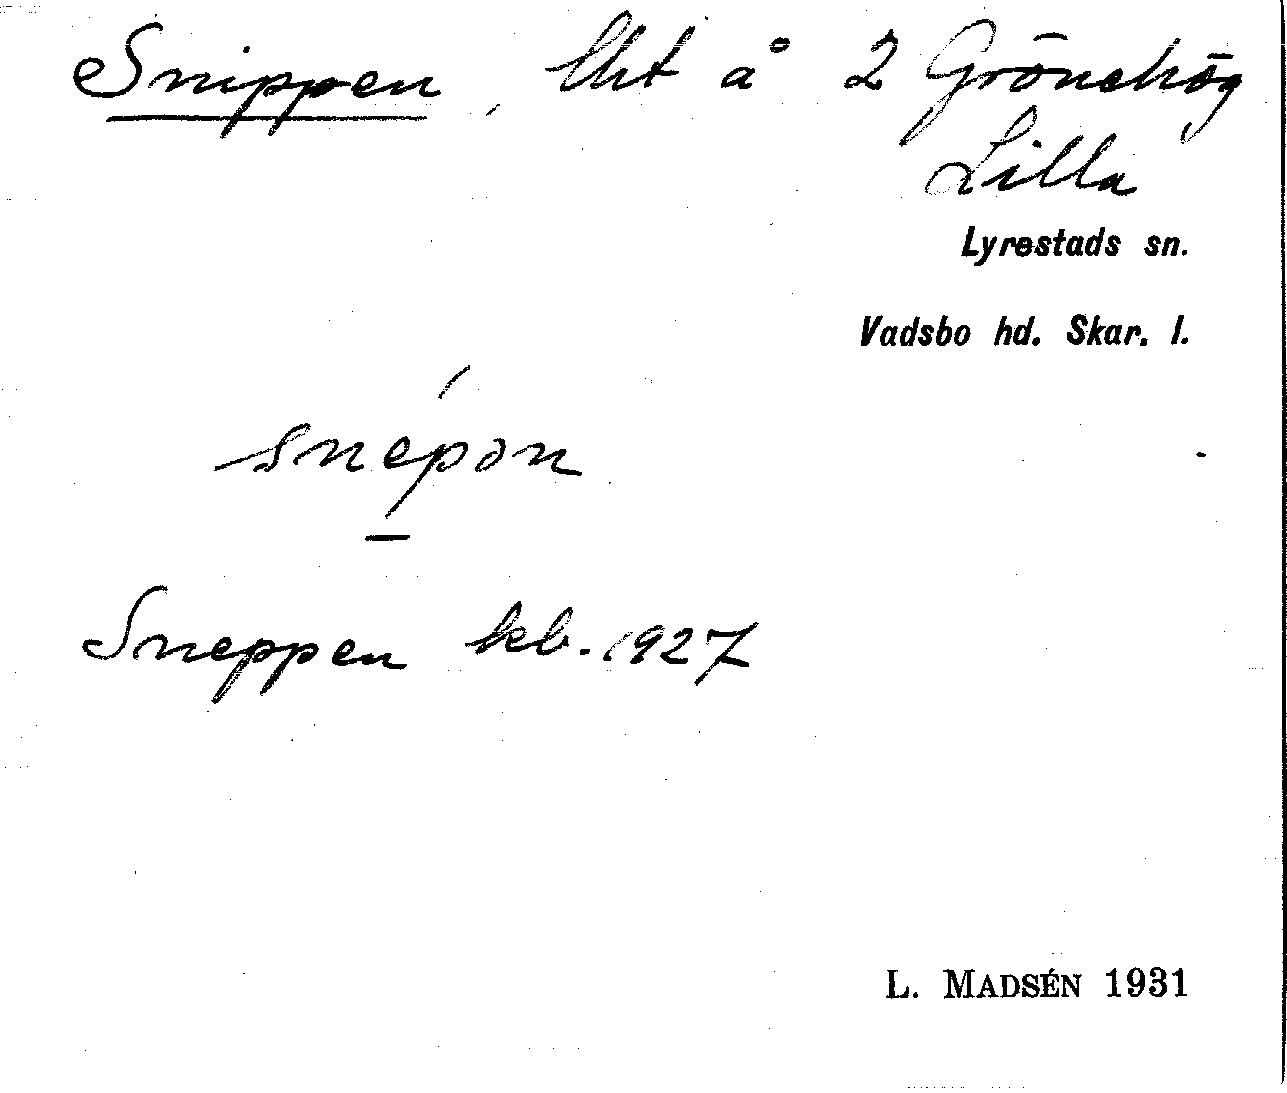 Snippen, lht å 2 Grönehög
Lilla
Lyrestads sn.
Vadsbo hd. Skar. l.
snépən
Sneppen kb. 1927
L. MADSÉN 1931